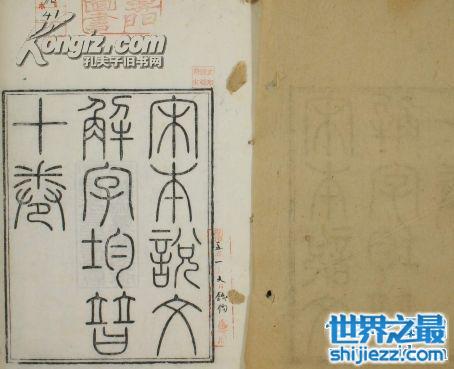 宋本說文
解字均普
十卷
Kongfz.com
孔夫子旧书网
世界之最
shijiezz.com